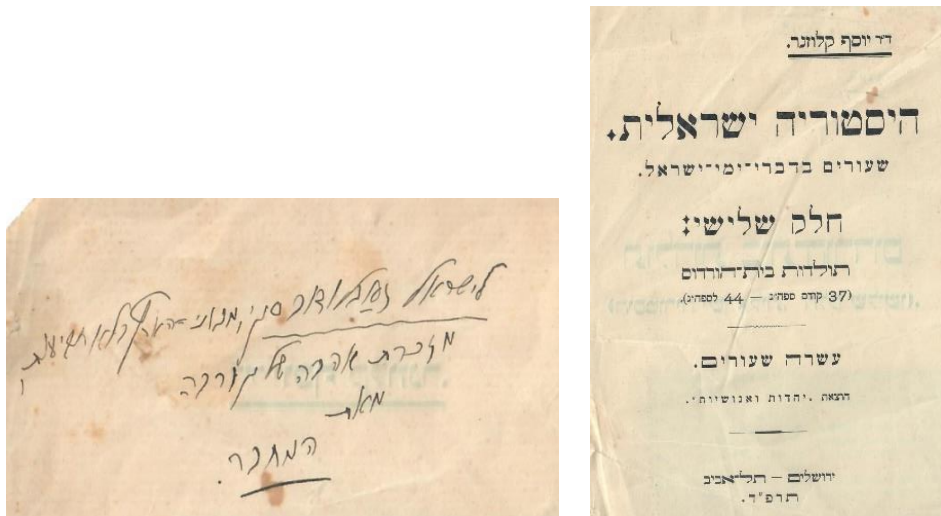 לישראל
מזכרת אהבה
מאת
המחבר.
ד״ר יוסף קלוזנר.
היסטוריה ישראלית.
שעורים בדברי־ימי־ישראל.
חלק שלישי:
תולדות בית־הורדוס
(37 קודם ספה״נ — 44 לספה״נ).
עשרה שעורים.
הוצאת „יהדות ואנושיות”.
ירושלים — תל־אביב
תרפ״ד.